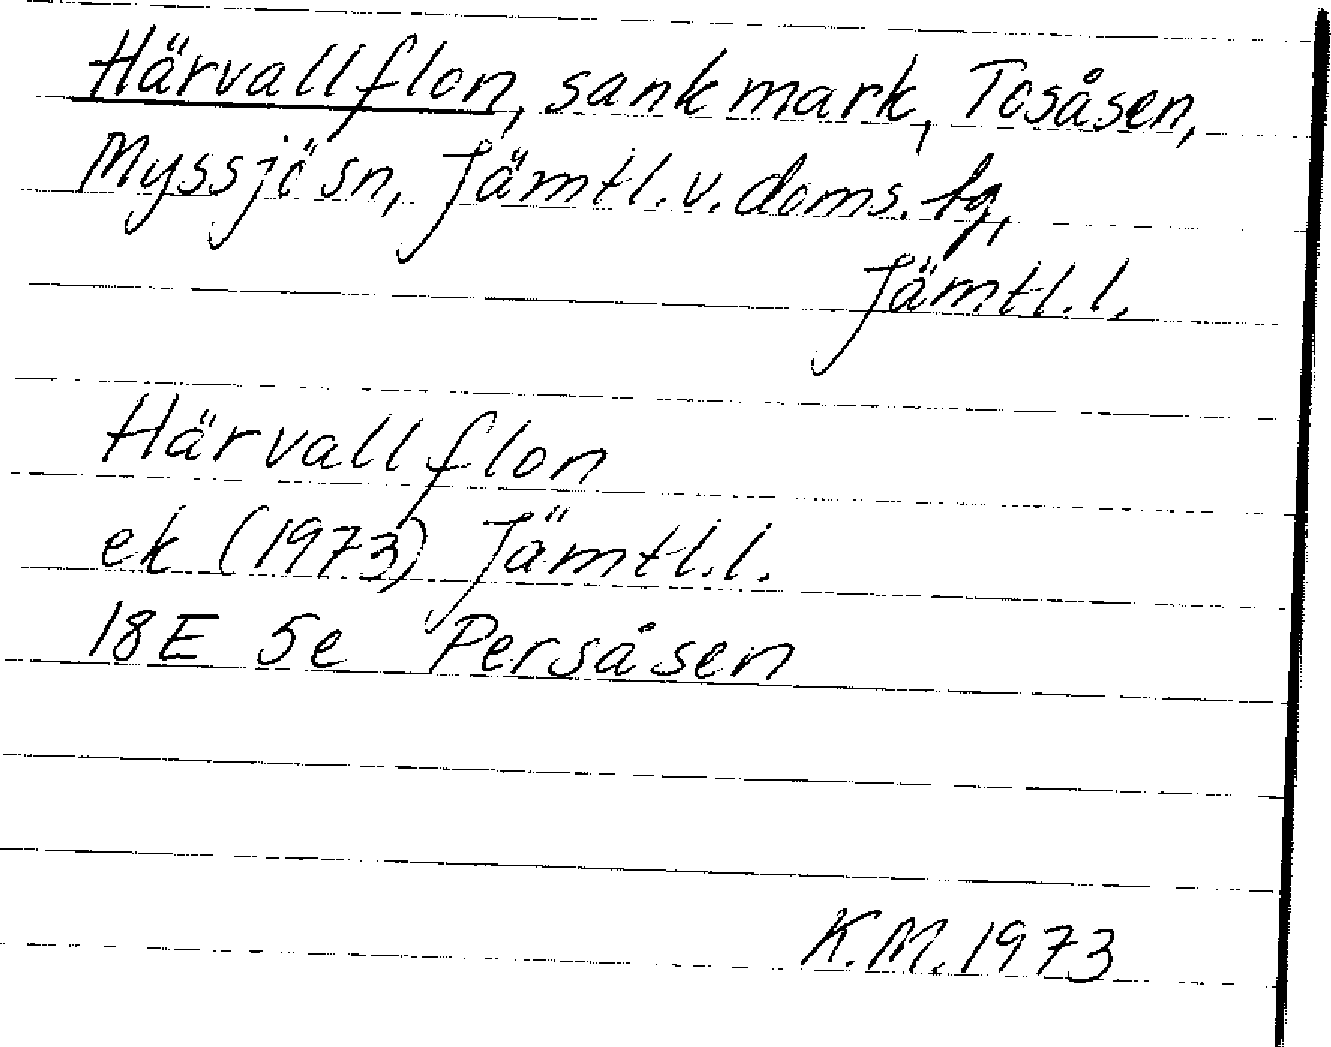 Härvallflon, sankmark, Tosåsen,
Myssjö sn, Jämtl. v. doms. tg,
Jämtl. l.
Härvallflon
ek (1973) Jämtl. l.
18E 5e Persåsen
K.M. 1973